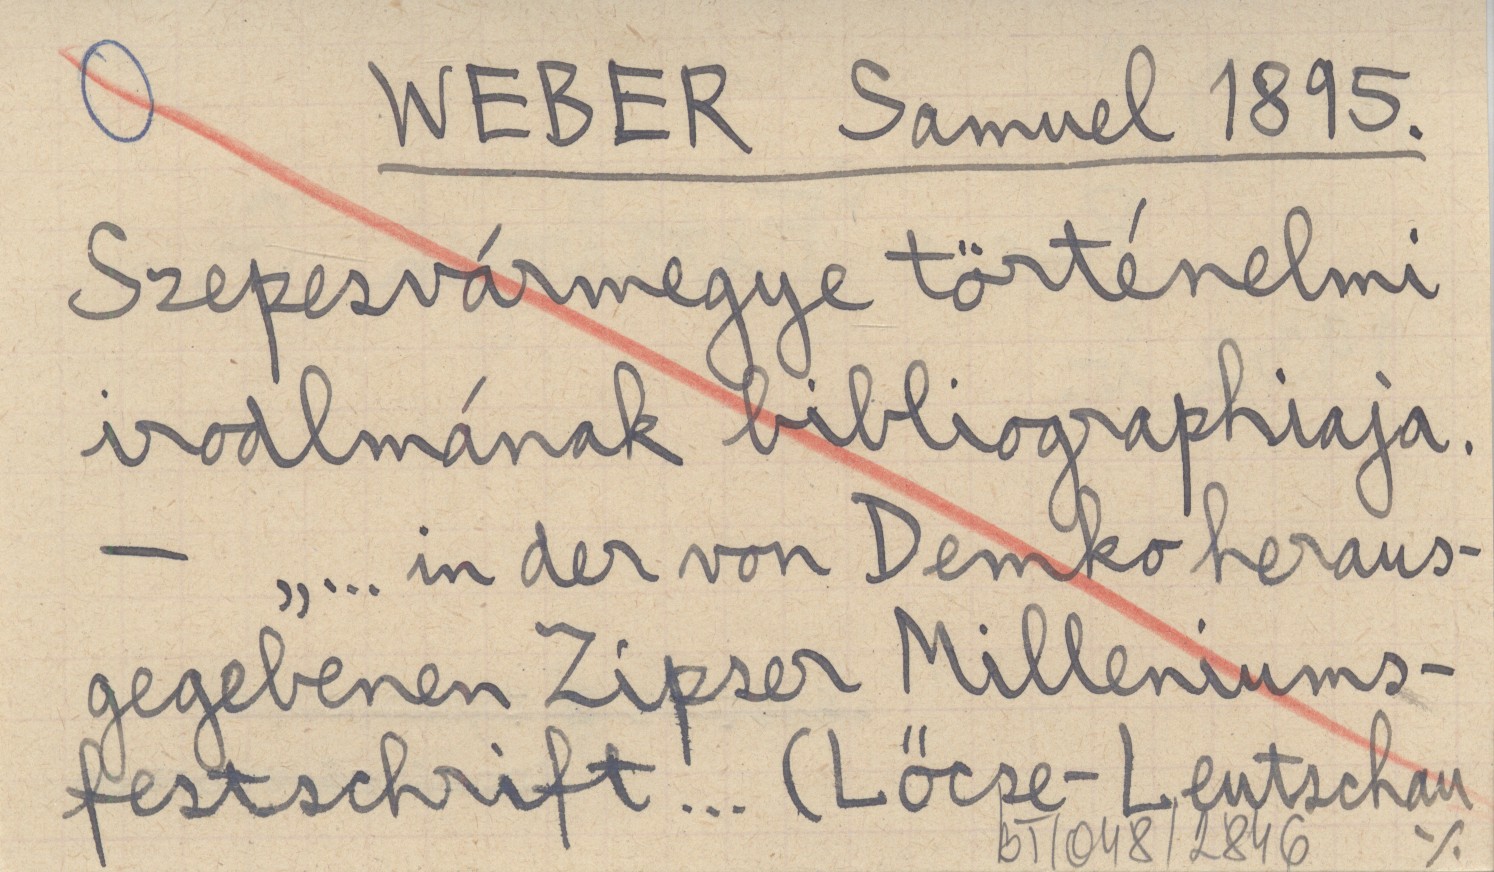 WEBER Samuel 1895.
Szepesvármegye történelmi
irodalmának bibliographiaja.
— „... in der von Demko heraus-
gegebenen Zipser Milleniums-
festschrift... (Lőcse-Leutschau
bT/048/2846 ./.